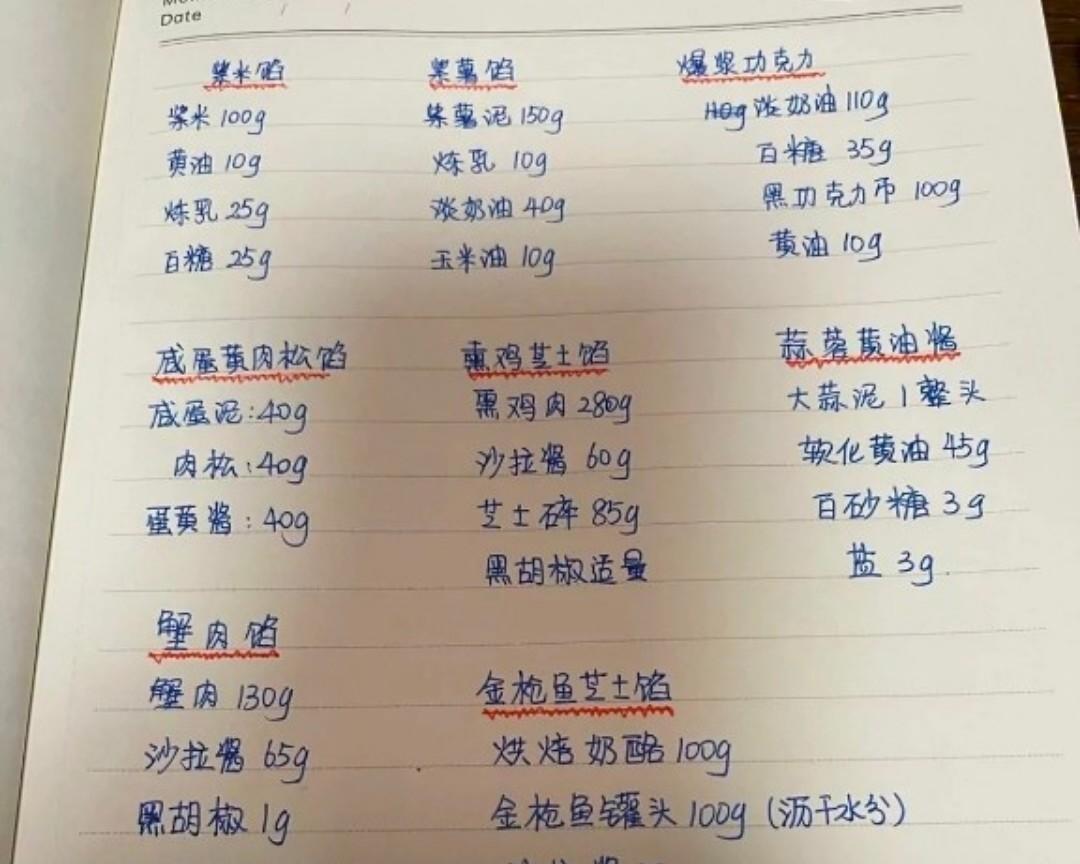 Date / /
紫米馅
紫米 100g
黄油 10g
炼乳 25g
白糖 25g
紫薯馅
紫薯泥 150g
炼乳 10g
淡奶油 40g
玉米油 10g
爆浆巧克力
110g 淡奶油 110g
白糖 35g
黑巧克力币 100g
黄油 10g
咸蛋黄肉松馅
咸蛋泥:40g
肉松:40g
蛋黄酱:40g
熏鸡芝士馅
熏鸡肉 280g
沙拉酱 60g
芝士碎 85g
黑胡椒适量
蒜蓉黄油酱
大蒜泥 1整头
软化黄油 45g
白砂糖 3g
盐 3g
蟹肉馅
蟹肉 130g
沙拉酱 65g
黑胡椒 1g
金枪鱼芝士馅
烘焙奶酪 100g
金枪鱼罐头 100g (沥干水分)